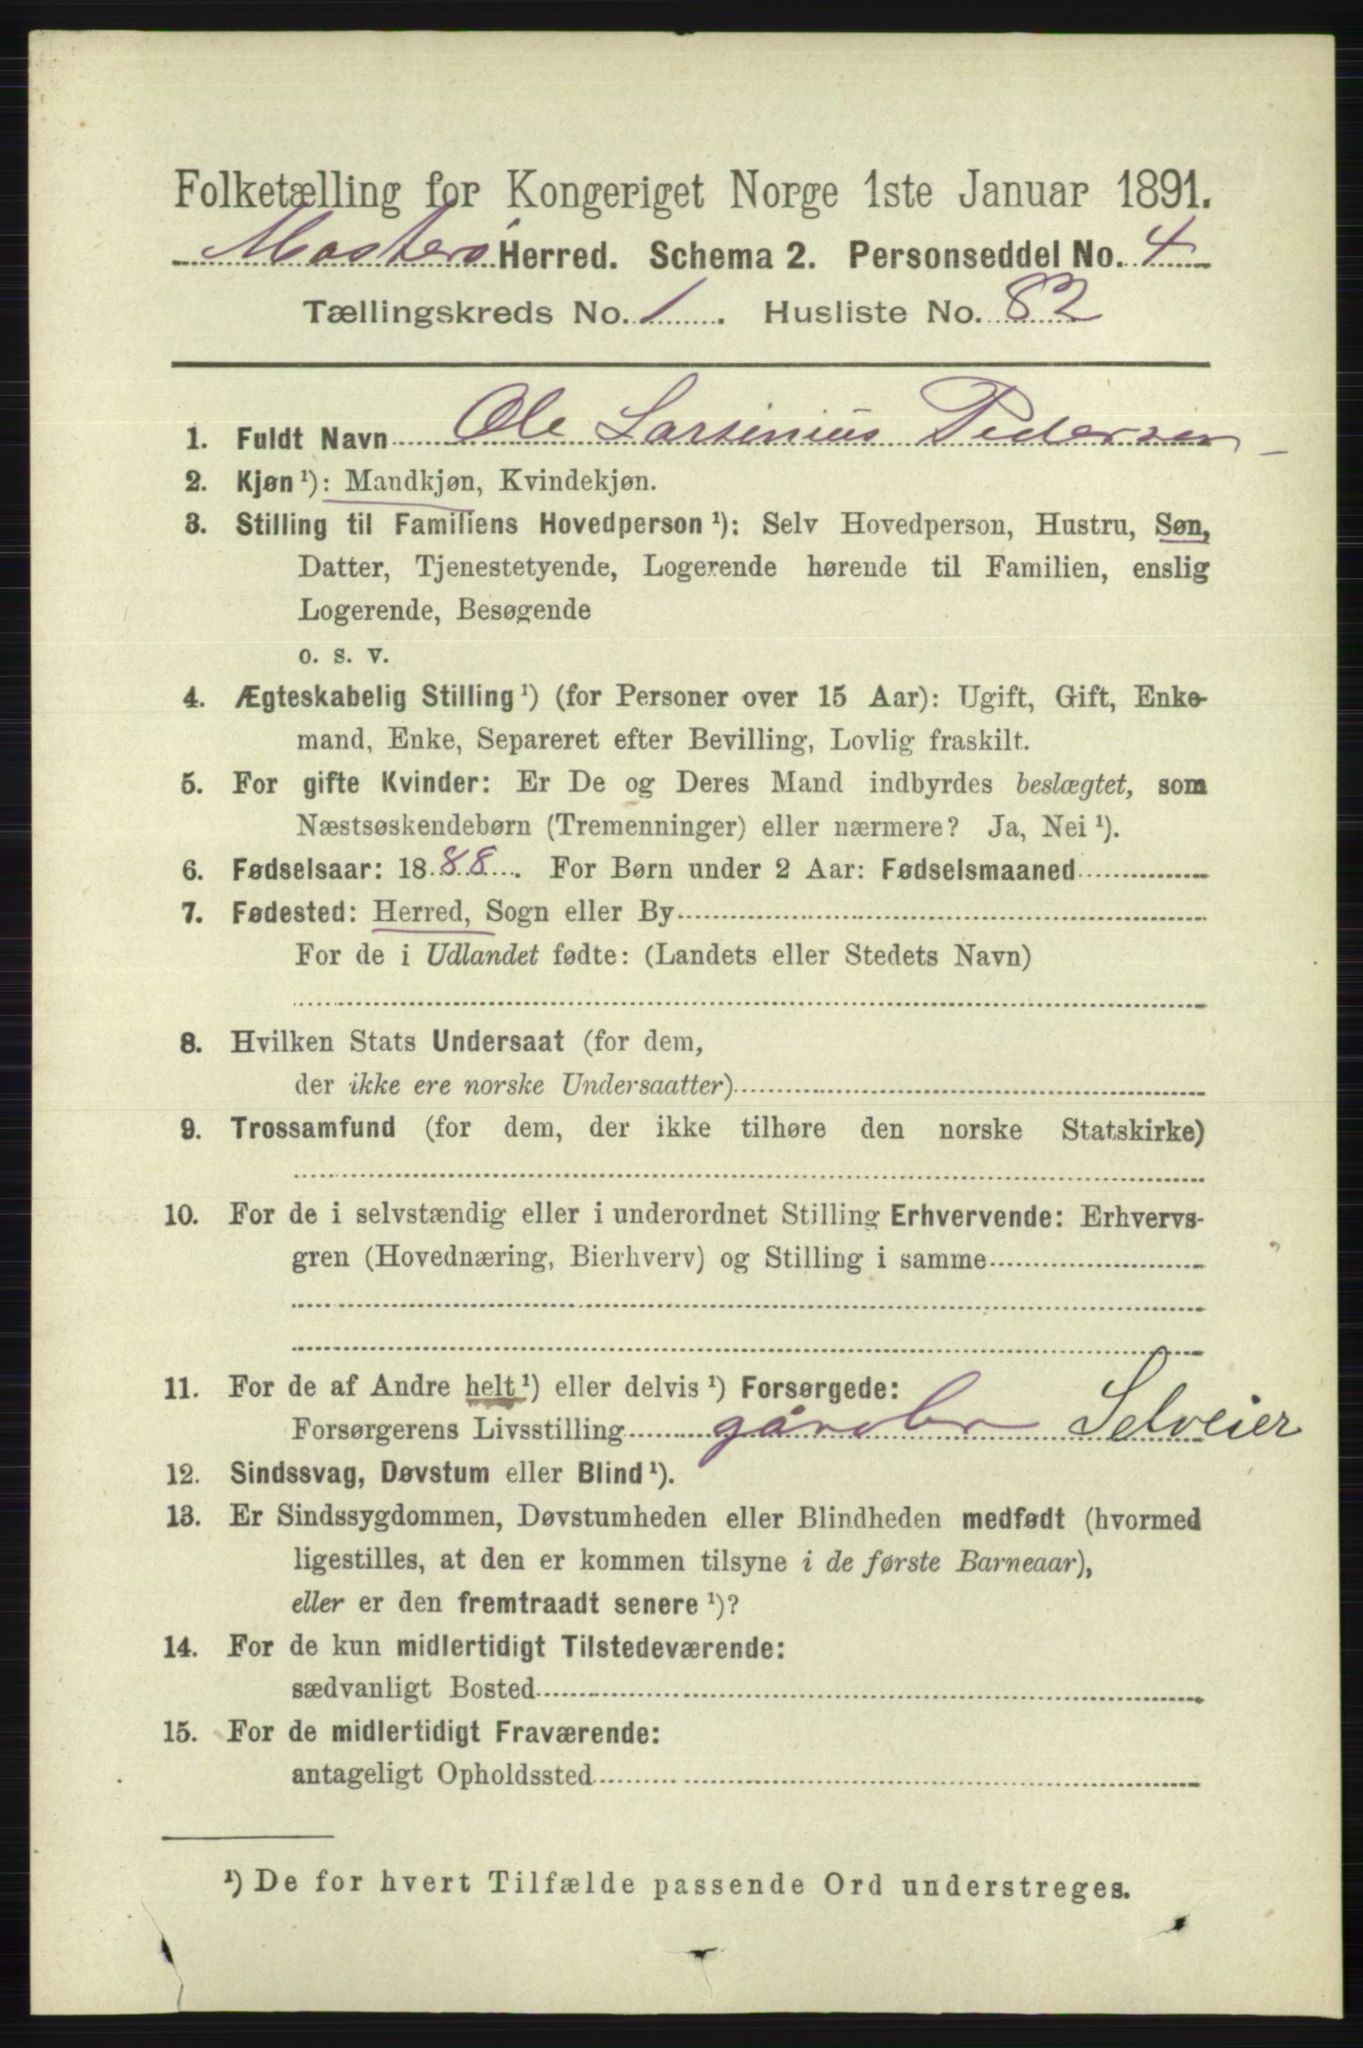 Folketælling for Kongeriget Norge 1ste Januar 1891.
Mosterø Herred. Schema 2. Personseddel No. 4
Tællingskreds No. 1. Husliste No. 82
1. Fuldt Navn Ole Larsinius Pedersen
2. Kjøn ¹): Mandkjøn, Kvindekjøn.
3. Stilling til Familiens Hovedperson ¹): Selv Hovedperson, Hustru, Søn,
Datter, Tjenestetyende, Logerende hørende til Familien, enslig
Logerende, Besøgende
o. s. v.
4. Ægteskabelig Stilling ¹) (for Personer over 15 Aar): Ugift, Gift, Enke-
mand, Enke, Separeret efter Bevilling, Lovlig fraskilt.
5. For gifte Kvinder: Er De og Deres Mand indbyrdes beslægtet, som
Næstsøskendebørn (Tremenninger) eller nærmere? Ja, Nei ¹).
6. Fødselsaar: 1888. For Børn under 2 Aar: Fødselsmaaned
7. Fødested: Herred, Sogn eller By
For de i Udlandet fødte: (Landets eller Stedets Navn)
8. Hvilken Stats Undersaat (for dem,
der ikke ere norske Undersaatter)
9. Trossamfund (for dem, der ikke tilhøre den norske Statskirke)
10. For de i selvstændig eller i underordnet Stilling Erhvervende: Erhvervs-
gren (Hovednæring, Bierhverv) og Stilling i samme
11. For de af Andre helt ¹) eller delvis ¹) Forsørgede:
Forsørgerens Livsstilling gårdbr Selveier
12. Sindssvag, Døvstum eller Blind ¹).
13. Er Sindssygdommen, Døvstumheden eller Blindheden medfødt (hvormed
ligestilles, at den er kommen tilsyne i de første Barneaar),
eller er den fremtraadt senere ¹)?
14. For de kun midlertidigt Tilstedeværende:
sædvanligt Bosted
15. For de midlertidigt Fraværende:
antageligt Opholdssted
¹) De for hvert Tilfælde passende Ord understreges.